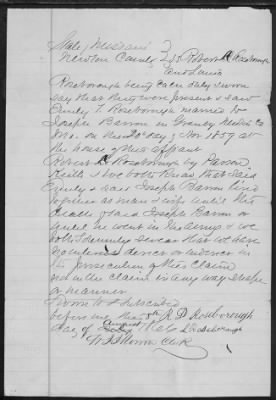 State, Missouri
Newton County } SS Robert R Roseborough
and Louisa
Roseborough being each duly sworn
say that they were present & saw
Emily T. Roseborough married to
Joseph Barron in Granby Newton Co
Mo. on the day of Nov. 1859 at
the house of this affiant
Robert Roseborough by Parson
Keith & we both know that said
Emily & said Joseph Barron lived
together as man & wife until the
death of said Joseph Barron or
until he went in the Army & we
both solemnly swear that we have
in
prosecution of this claim
in the claim in any way shape
or manner
Sworn to & subscribed
before me this 8th R R Roseborough
day of August L Roseborough
Clerk